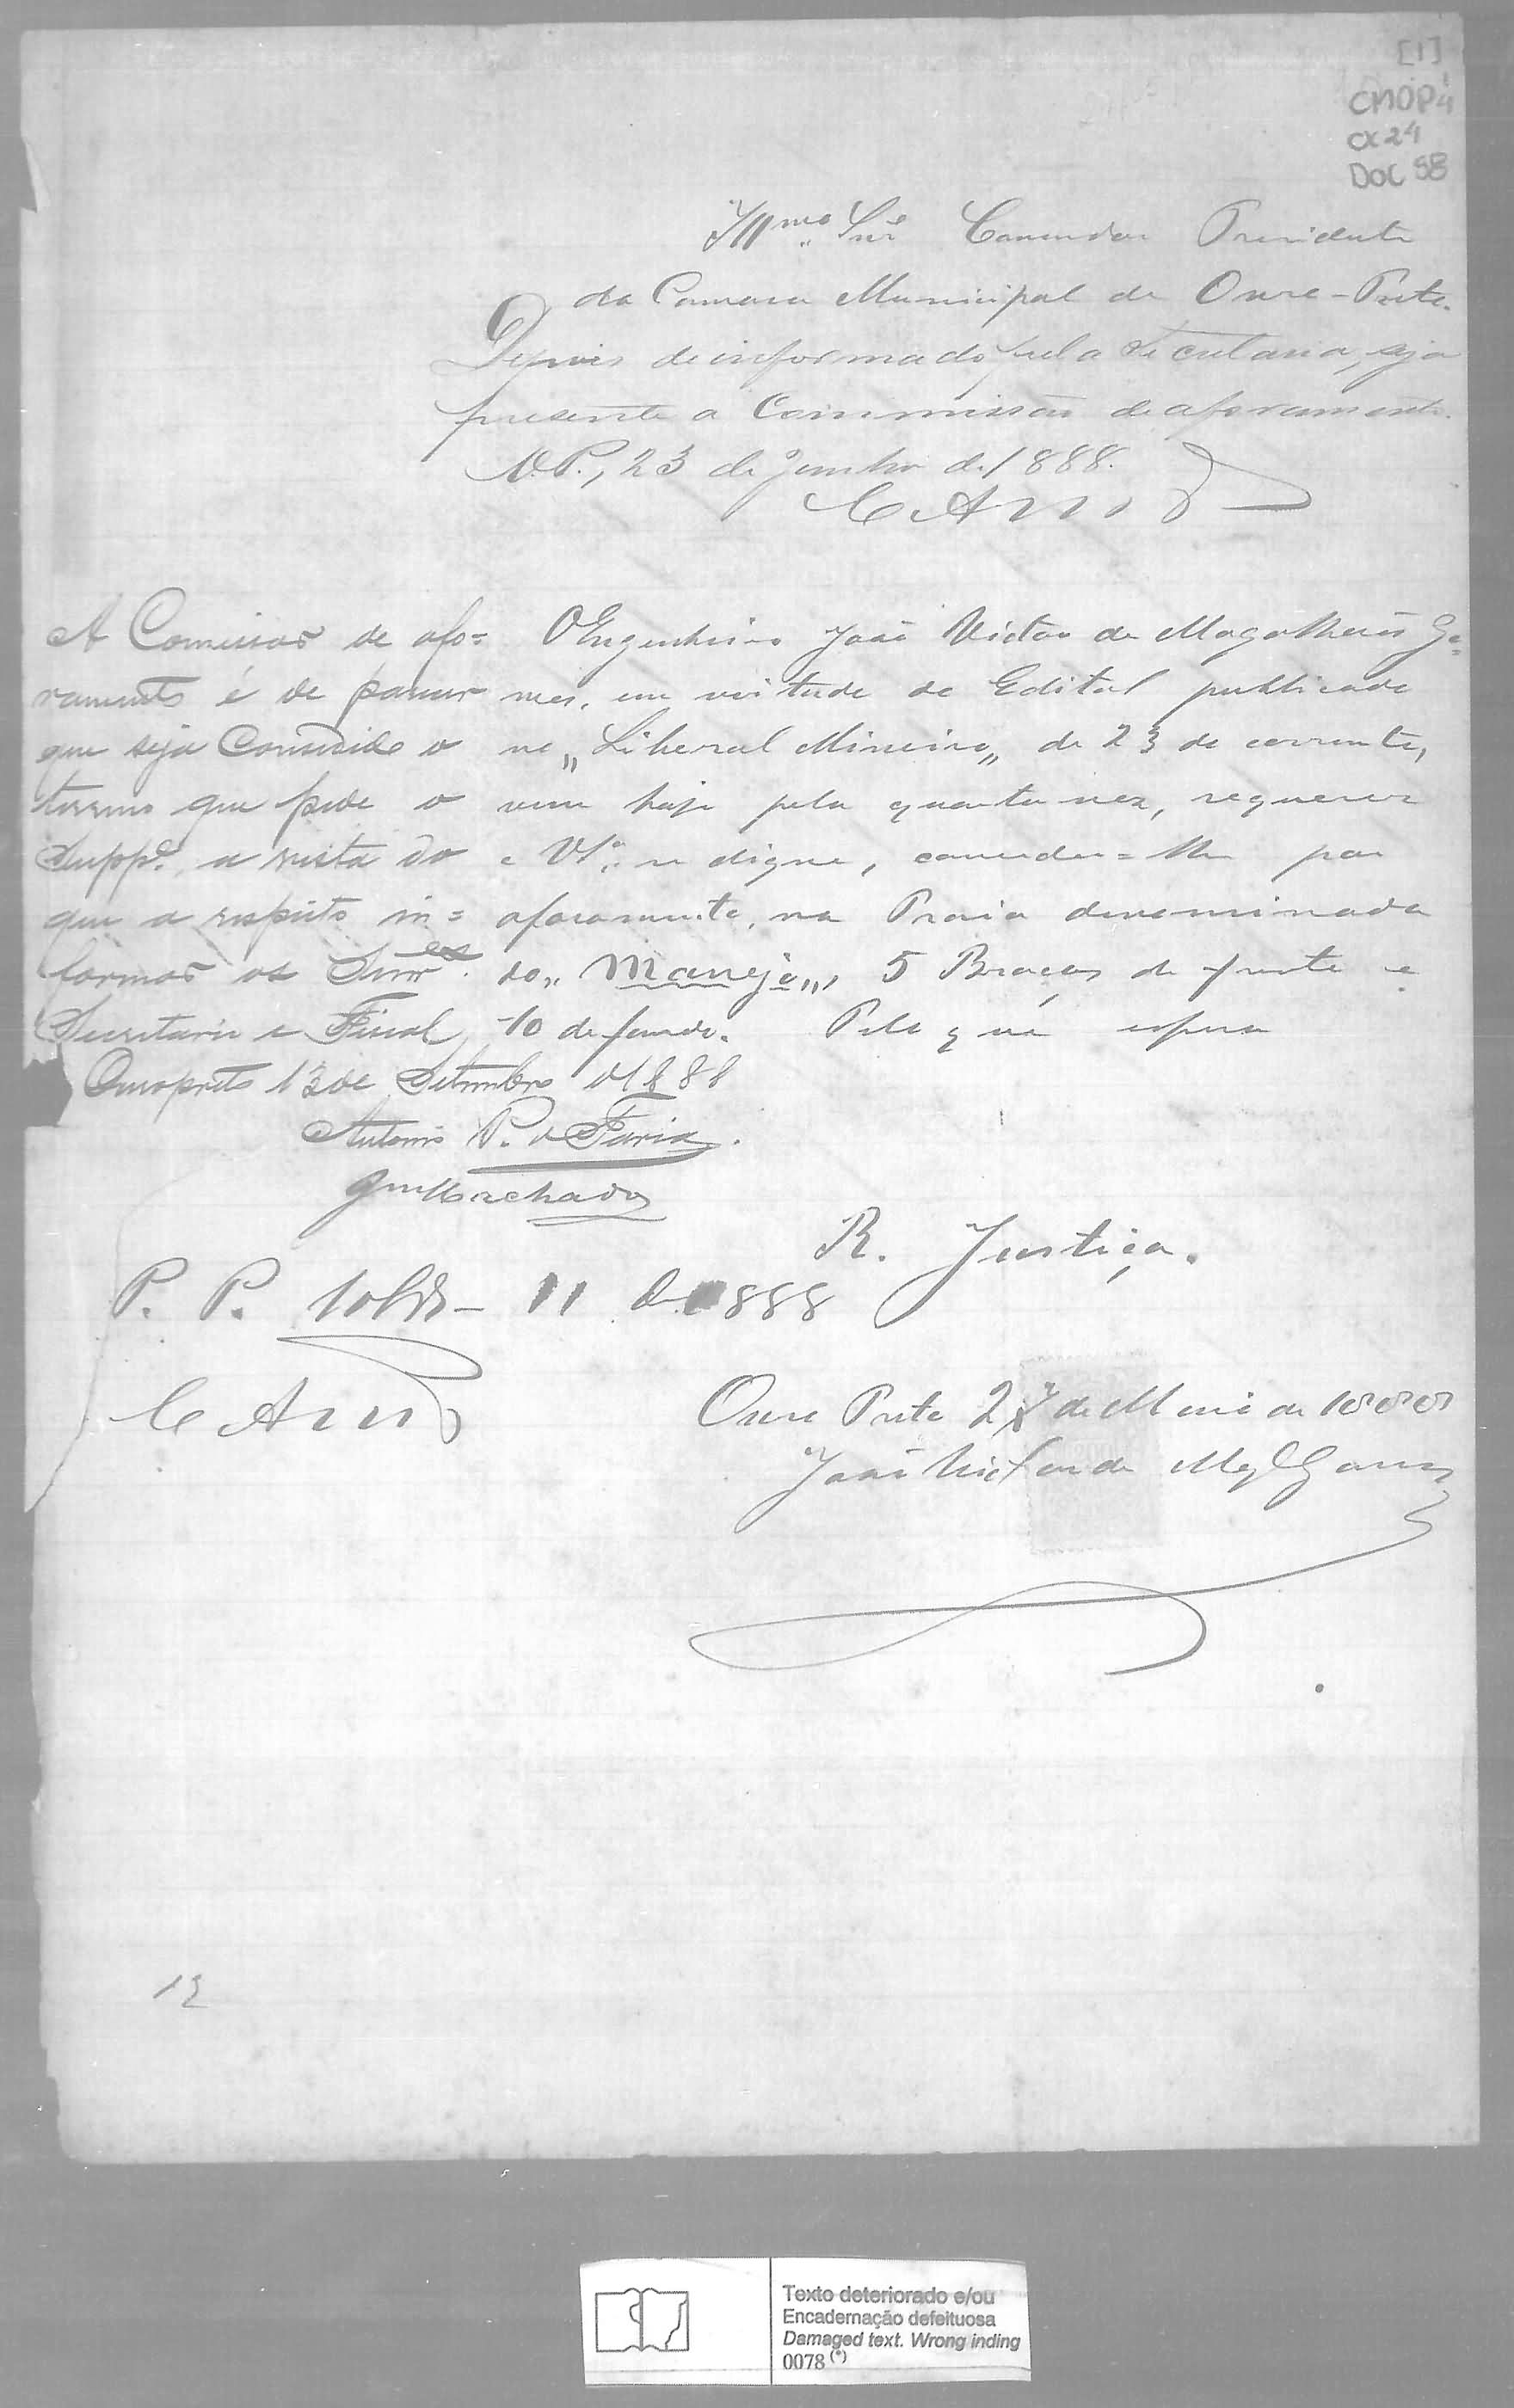 [1]
CMOP
CX 24
DOC 58
Illmo. Snr. Comendor Presidente
da Camara Municipal de Ouro-Preto.
Depois de informado pela Secretaria, seja
presente a Commissão de aforamento.
O.P., 23 de Junho de 1888.
A Comissão de afo=
ramento é de parecer
que seja Concedido o
terreno que pede o
Suppe. a vista do
que a respeito in=
formão os Snres.
Secretario e Fiscal
Ouropreto 13 de Setembro de 1888
Antonio P. de Faria.
Machado
O Engenheiro João Victor de Magalhães Go=
mes, em virtude do Edital publicado
no „Liberal Mineiro„ de 23 do corrente,
vem hoje pela quarta vez, requerer
a Va. se digne, conceder=lhe por
aforamento, na Praia denominada
do „Manejo„, 5 Braças de frente e
10 de fundo. Pelo que espera
R. Justiça.
P. P. 11 1888
Ouro Preto 27 de Maio de 1888
João Victor de Mag Gomes
12
Texto deteriorado e/ou
Encadernação defeituosa
Damaged text. Wrong inding
0078 (*)